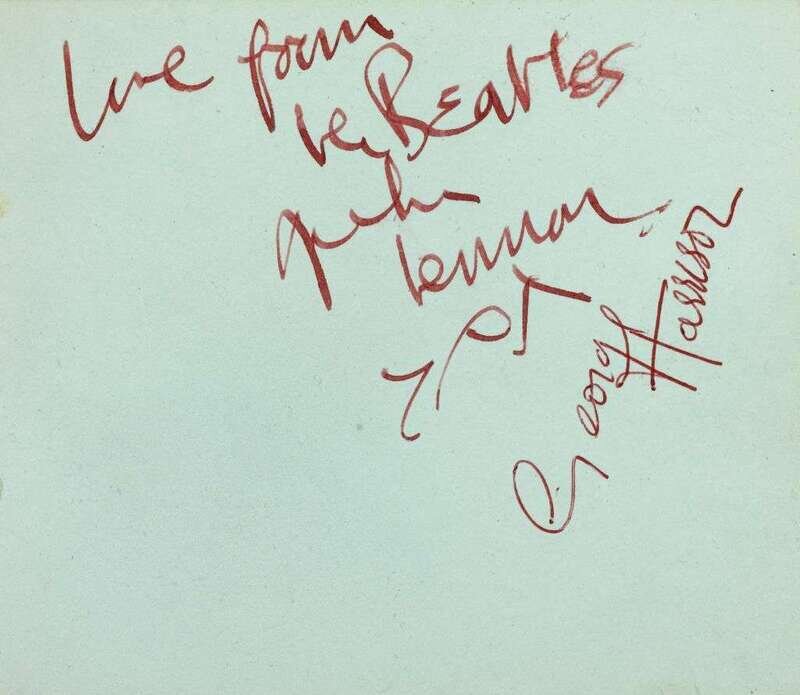 love from
the Beatles
John
Lennon
George Harrison